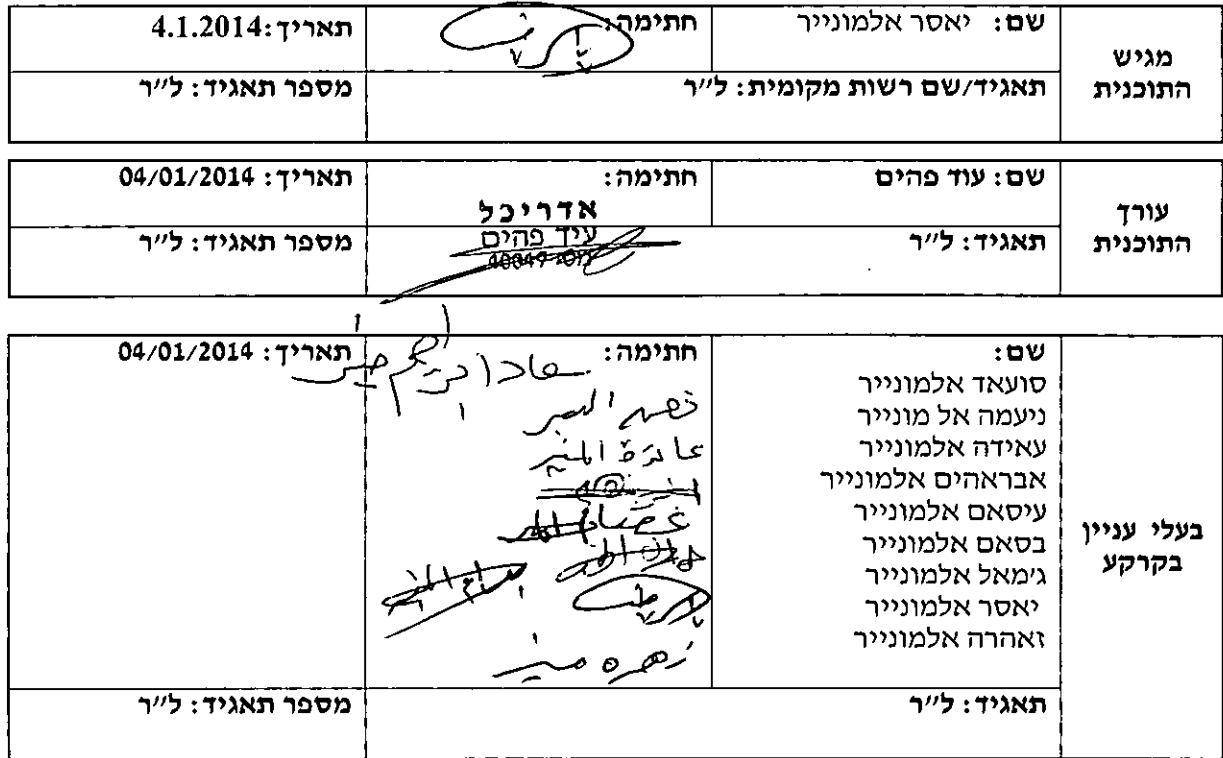 מגיש התוכנית
שם: יאסר אלמונייר
חתימה:
תאריך: 4.1.2014
תאגיד/שם רשות מקומית: ל״ר
מספר תאגיד: ל״ר
עורך התוכנית
שם: עוד פהים
חתימה:
אדריכל
עיד פהים
תאריך: 04/01/2014
תאגיד: ל״ר
מספר תאגיד: ל״ר
בעלי עניין בקרקע
שם:
סועאד אלמונייר
ניעמה אל מונייר
עאידה אלמונייר
אבראהים אלמונייר
עיסאם אלמונייר
בסאם אלמונייר
ג׳מאל אלמונייר
יאסר אלמונייר
זאהרה אלמונייר
חתימה:
عائدة المنير
زهره منير
תאריך: 04/01/2014
תאגיד: ל״ר
מספר תאגיד: ל״ר